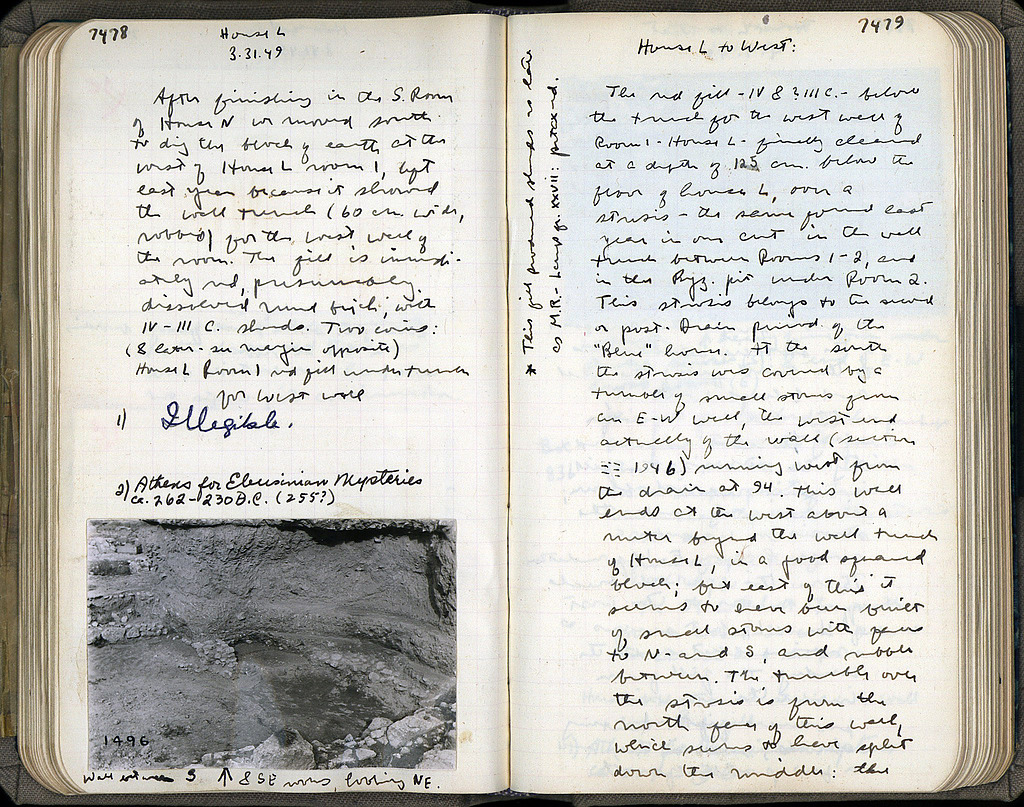 7478
House L
3.31.49
After finishing in the S. Room
of House N we moved south
to dig the block of earth at the
west of House L room 1, left
last year because it showed
the wall trench (60 cm. wide,
robbed) for the west wall of
the room. The fill is immedi-
ately red, presumably
dissolved mud brick, with
IV-III C. sherds. Two coins:
(8 later - see margin opposite)
House L Room 1 red fill under trench
for west wall
1) Illegible.
2) Athens for Eleusinian Mysteries
ca. 262-230 B.C. (255?)
1496
Wall between 3 ↑ & SE rooms, looking NE.
* This fill produced sherds as late
as M.R. - Lamp fr. XXVII: potted
7479
House L to West:
The red fill - IV & ? III C. - below
the trench for the west wall of
Room 1 - House L - finally cleared
at a depth of 125 cm. below the
floor of house L, over a
strosis - the same found last
year in our cut in the wall
trench between Rooms 1-2, and
in the Byz. pit under Room 2.
This strosis belongs to the second
or post-Drain period of the
"Bene" house. At the south
the strosis was covered by a
tumble of small stones from
an E-W wall, the west end
actually of the wall (section
ΞΞ 1946) running west from
the drain at 94. This wall
ends at the west about a
meter beyond the wall trench
of House L, in a good squared
block; but east of this it
seems to have been built
of small stones with faces
to N- and S, and rubble
between. The tumble over
the strosis is from the
north face of this wall,
which seems to have split
down the middle: the